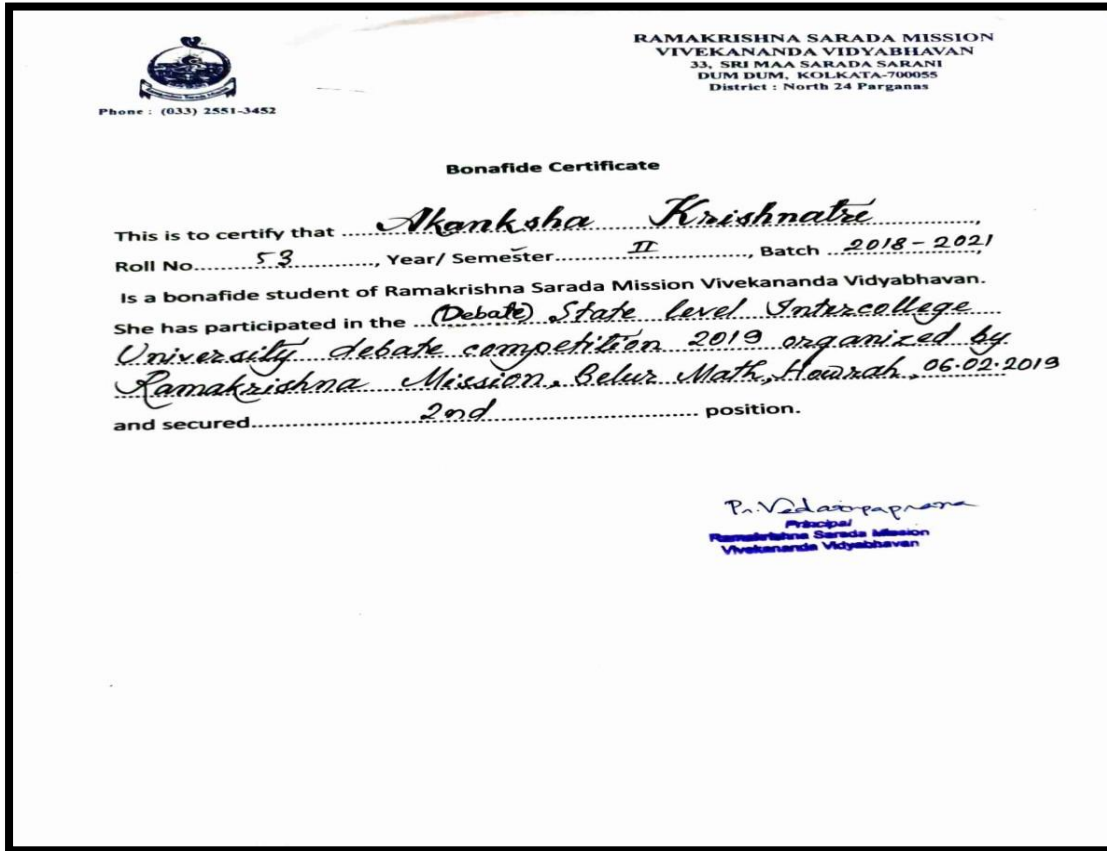 RAMAKRISHNA SARADA MISSION
VIVEKANANDA VIDYABHAVAN
33, SRI MAA SARADA SARANI
DUM DUM, KOLKATA-700055
District : North 24 Parganas
Phone : (033) 2551-3452
Bonafide Certificate
This is to certify that ..... Akanksha Krishnatre .....,
Roll No..... 53 ....., Year/ Semester..... II ....., Batch ..... 2018-2021 .....,
Is a bonafide student of Ramakrishna Sarada Mission Vivekananda Vidyabhavan.
She has participated in the ..... (Debate) State level Intercollege
University debate competition 2019 organized by
Ramakrishna Mission, Belur Math, Howrah, 06.02.2019
and secured..... 2nd ..... position.
Principal
Ramakrishna Sarada Mission
Vivekananda Vidyabhavan